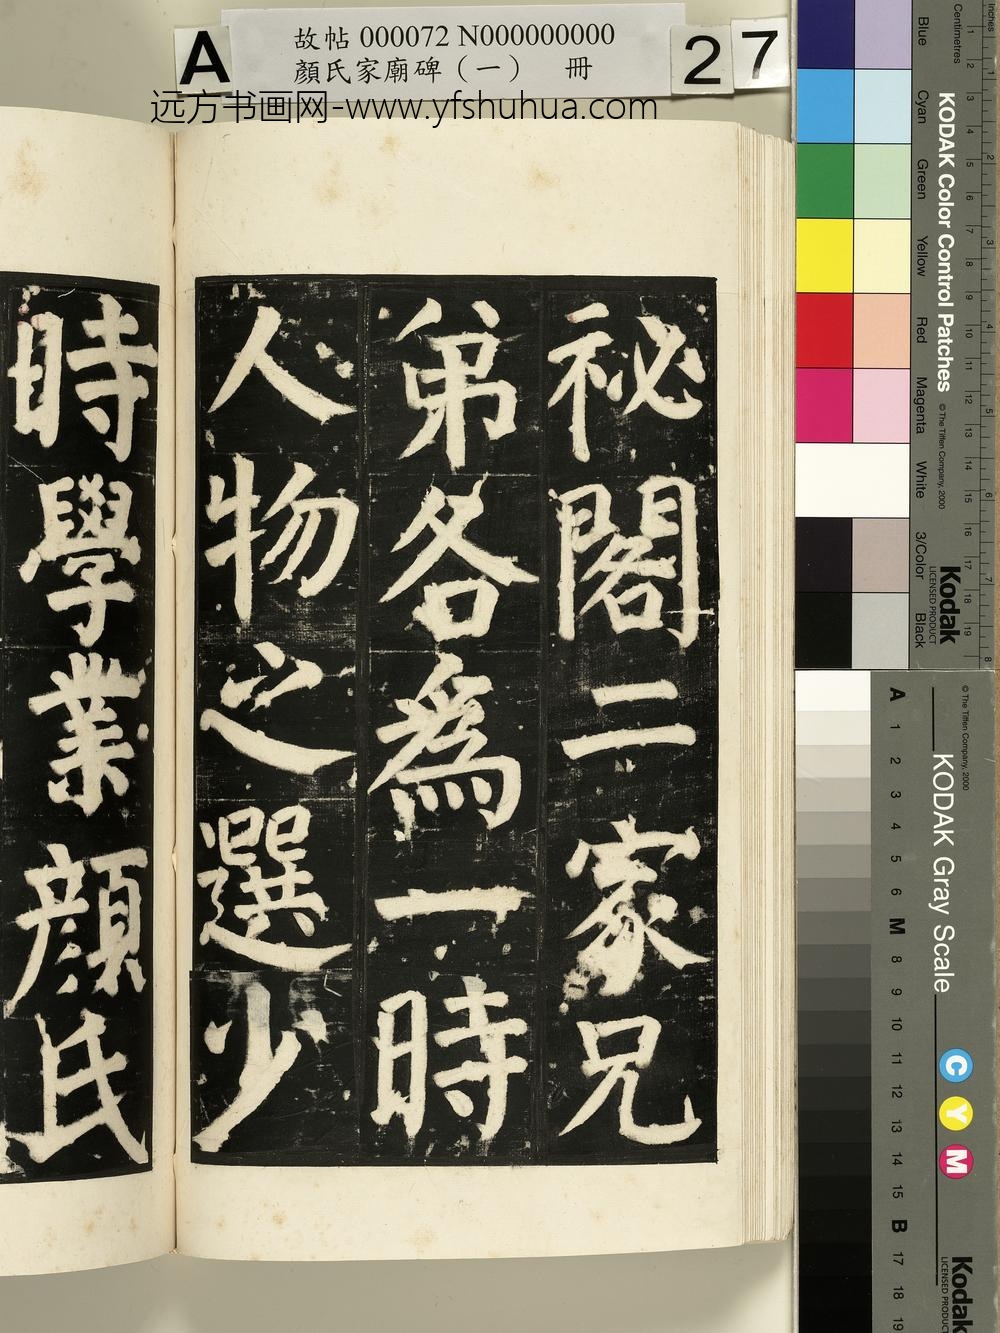 A
故帖 000072 N000000000
顏氏家廟碑（一）　冊
27
远方书画网-www.yfshuhua.com
祕閣二家兄
弟各為一時
人物之選少
時學業顏氏
Inches
Centimetres
1 2 3 4 5 6 7 8
1 2 3 4 5 6 7 8 9 10 11 12 13 14 15 16 17 18 19
KODAK Color Control Patches
© The Tiffen Company, 2000
Kodak
LICENSED PRODUCT
Blue
Cyan
Green
Yellow
Red
Magenta
White
3/Color
Black
© The Tiffen Company, 2000
KODAK Gray Scale
C
Y
M
Kodak
LICENSED PRODUCT
A 1 2 3 4 5 6 M 8 9 10 11 12 13 14 15 B 17 18 19